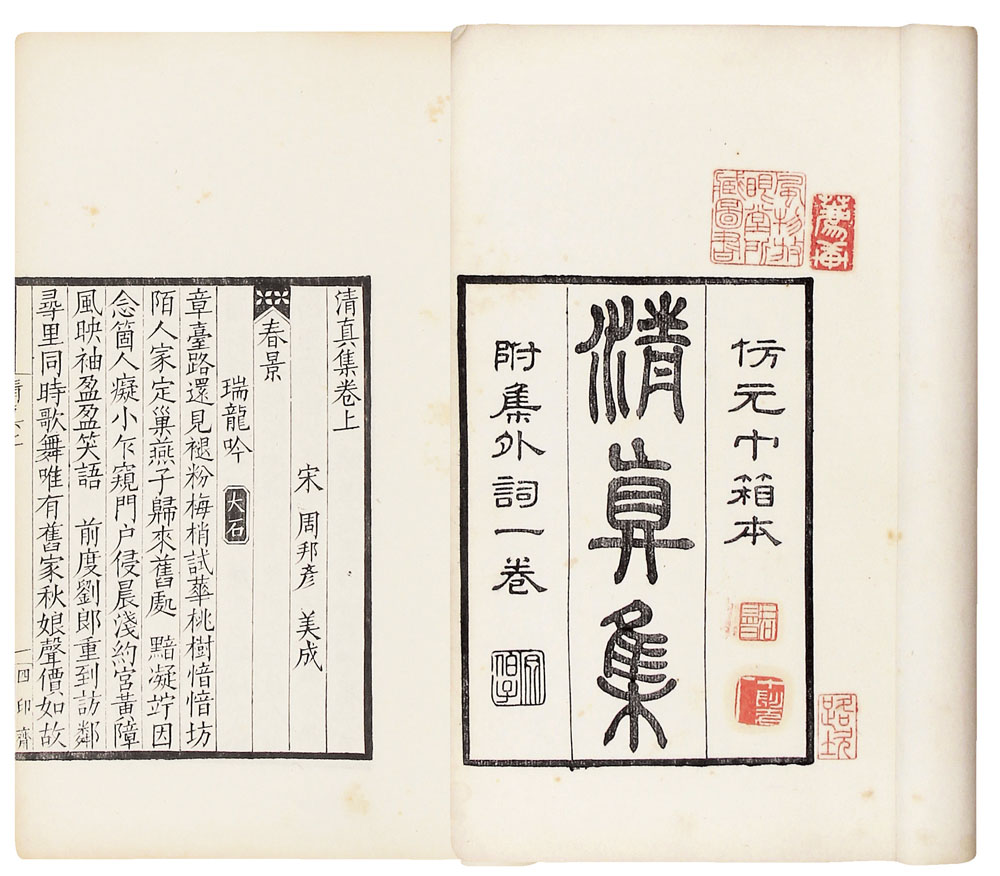 風物放眼堂所藏圖書
仿元巾箱本
清真集
附集外詞一卷
清真集卷上
宋 周邦彦 美成
春景
瑞龍吟 大石
章臺路還見褪粉梅梢試華桃樹愔愔坊
陌人家定巢燕子歸來舊處 黯凝竚因
念箇人癡小乍窺門户侵晨淺約宮黃障
風映袖盈盈笑語 前度劉郎重到訪鄰
尋里同時歌舞唯有舊家秋娘聲價如故
四印齋